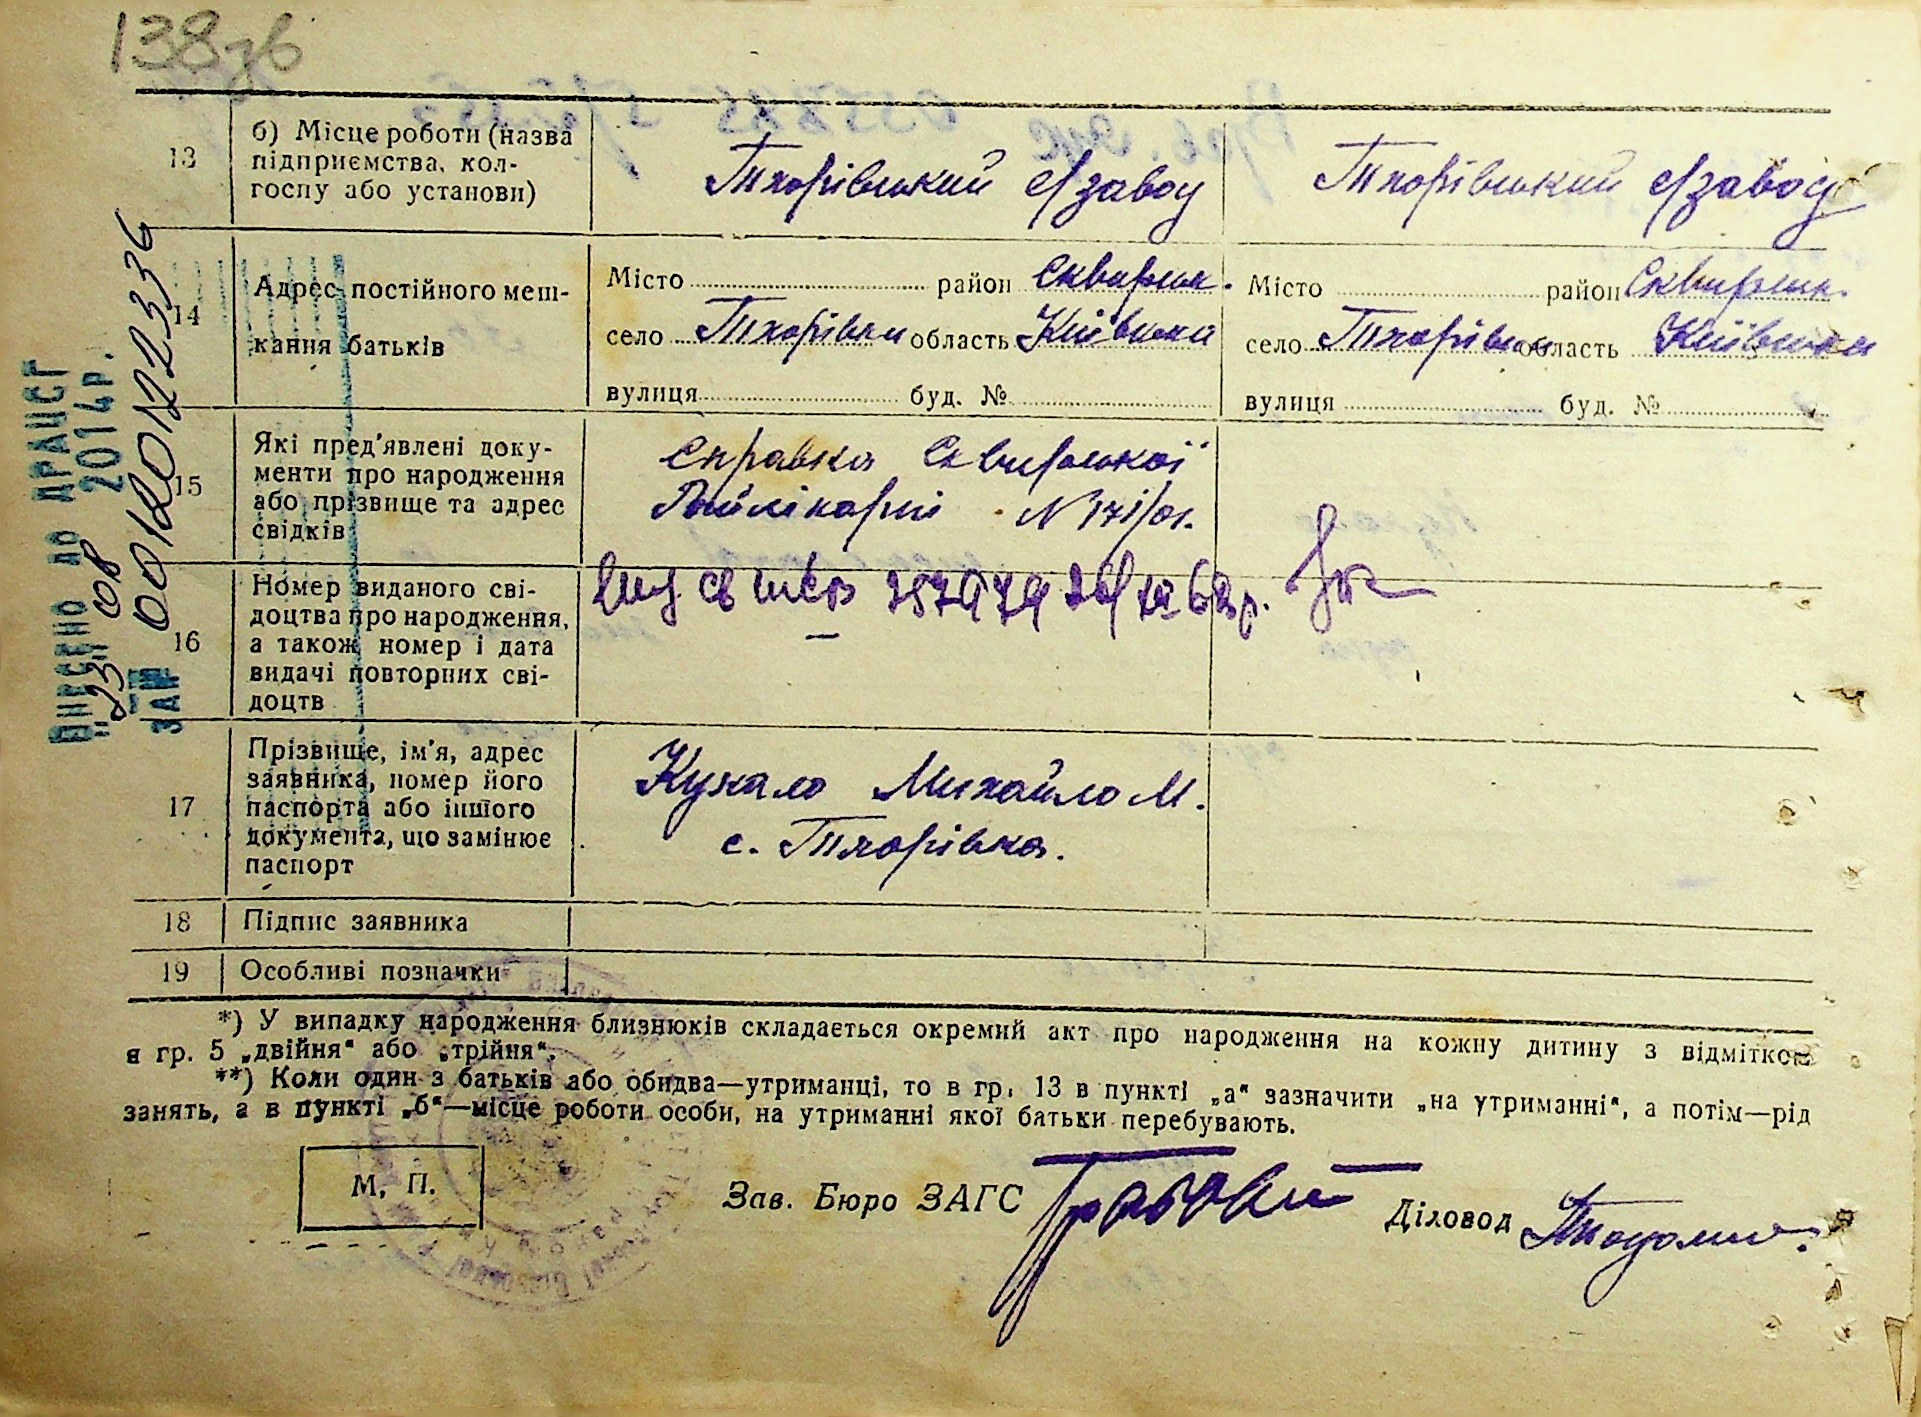 138зв
13 б) Місце роботи (назва підприємства, колгоспу або установи) Тхорівський с/завод Тхорівський с/завод
14 Адрес постійного мешкання батьків
Місто район Сквирськ. Місто район Сквирськ.
село Тхорівка область Київська село Тхорівка область Київська
вулиця буд. № вулиця буд. №
15 Які пред'явлені документи про народження або прізвище та адрес свідків
Справка Сквирської
Райлікарні N 171/01.
16 Номер виданого свідоцтва про народження, а також номер і дата видачі повторних свідоцтв
17 Прізвище, ім'я, адрес заявника, номер його паспорта або іншого документа, що замінює паспорт
Кукало Михайло М.
с. Тхорівка.
18 Підпис заявника
19 Особливі позначки
*) У випадку народження близнюків складається окремий акт про народження на кожну дитину з відміткою
в гр. 5 „двійня“ або „трійня“.
**) Коли один з батьків або обидва—утриманці, то в гр. 13 в пункті „а“ зазначити „на утриманні“, а потім—рід
занять, а в пункті „б“—місце роботи особи, на утриманні якої батьки перебувають.
М. П.
Зав. Бюро ЗАГС Діловод
ВНЕСЕНО до ДРАЦСГ
"23" 08 2014р.
ЗА № 00120122336